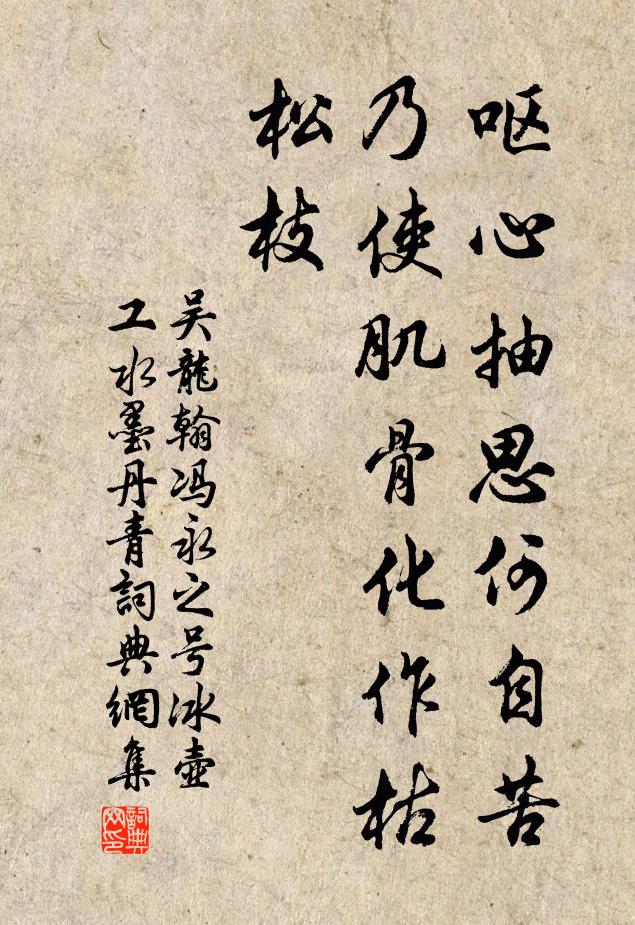 呕心抽思何自苦
乃使肌骨化作枯
松枝
吴龍翰冯永之号冰壶
工水墨丹青詞典網集
詞典
网印